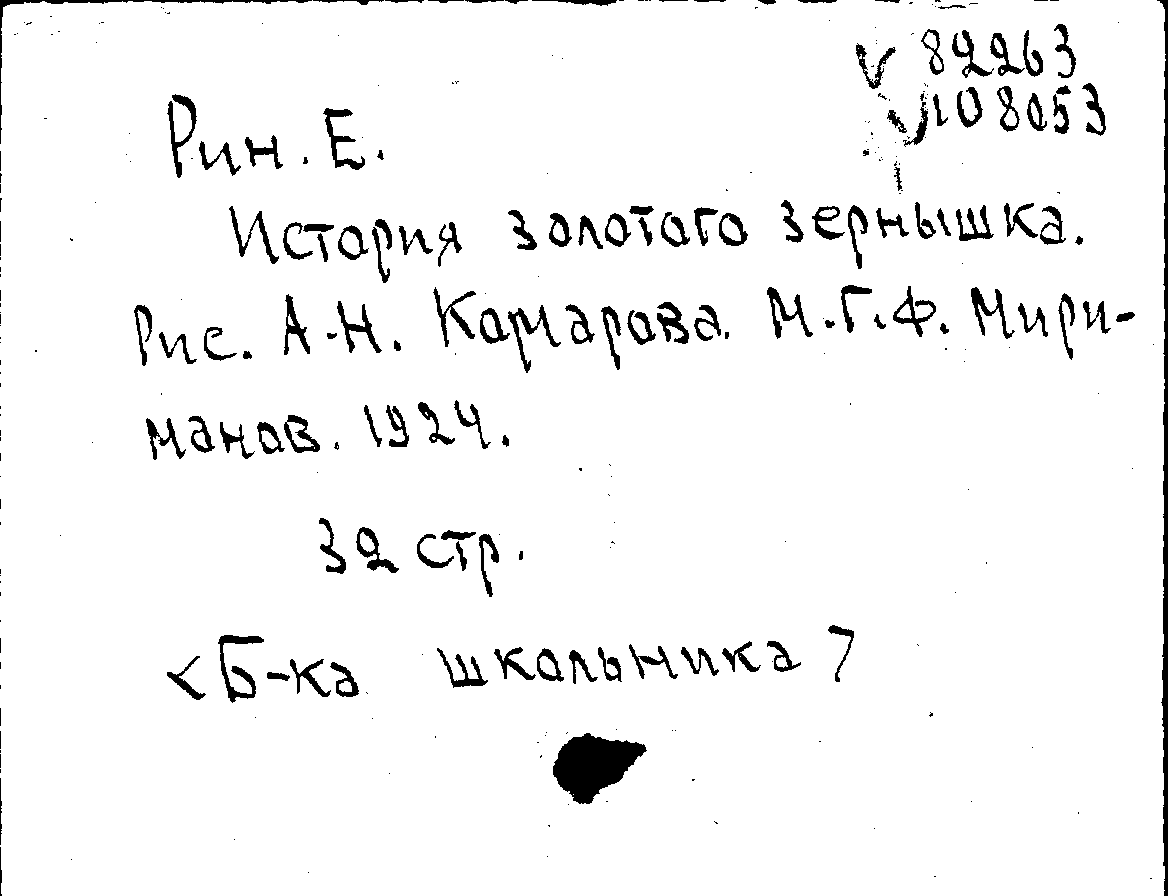 82263
108053
Рин. Е.
История золотого зернышка.
Рис. А.Н. Комарова. М.Г.Ф. Мири-
манов. 1924.
32 стр.
<Б-ка школьника>